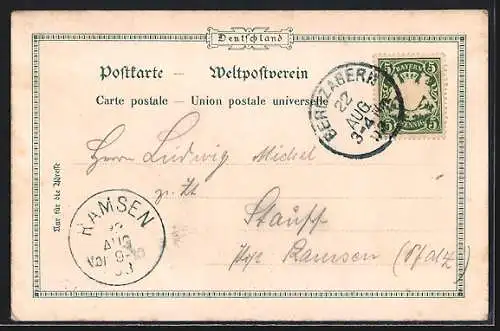 Deutschland
Postkarte — Weltpostverein
Carte postale — Union postale universelle
BAYERN
5 5
5 PFENNIG 5
BERGZABERN
22
AUG
3-4
Nur für die Adresse
Herrn Ludwig Michel
z. Zt
Stauff
Ramsen (Pfalz)
RAMSEN
22
AUG